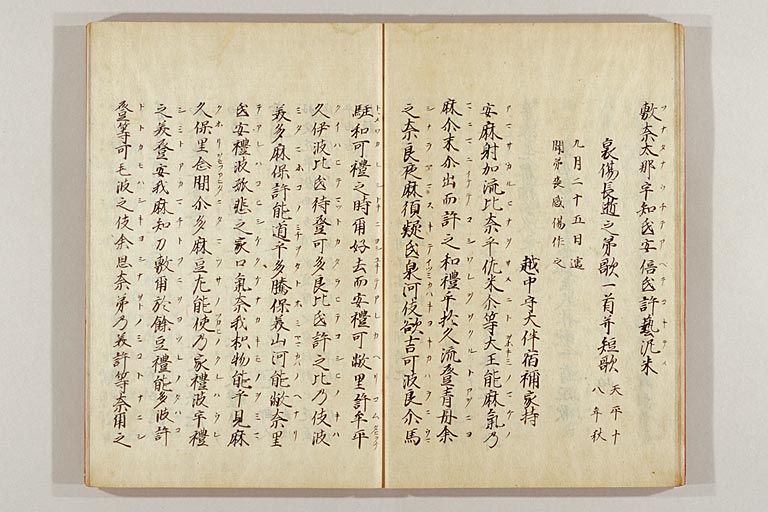 敷奈太那宇知氐安倍氐許藝泥米
哀傷長逝之弟歌一首并短歌 天平十
八年秋
九月二十五日遙
聞弟喪感傷作之
越中守大伴宿禰家持
安麻射加流比奈乎佐米尓等大王能麻氣乃
麻尓末尓出而許之和禮乎於久流登青丹余
之奈良夜麻須疑氐泉河伎欲吉可波良尓馬
駐和可禮之時爾好去而安禮可敝里許牟平
久伊波比氐待登可多良比氐許之比乃伎波
美多麻保許能道乎多騰保美山河能敝奈里
氐安禮波孤悲之家口氣奈我枳物能乎見麻
久保里念間尓多麻豆左能使乃家禮波宇禮
之美登安我麻知刀敷爾於餘豆禮能多波許
登等可毛波之伎余思奈弟乃美許等奈爾之